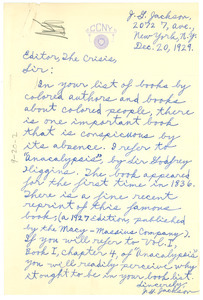 J. G. Jackson,
2072 7, Ave.,
New York, N.Y.
Dec. 20, 1929.
CCNY
Editor, The Crisis,
Sir:
In your list of books by
colored authors and books
about colored people, there
is one important book
that is conspicuous by
its absence. I refer to
"Anacalypsis", by Sir Godfrey
Higgins. The book appeared
for the first time in 1836.
There is a fine recent
reprint of this famous
book (a 1927 edition, published
by the Macy-Massius Company).
If you will refer to Vol. I,
Book I, chapter 4, of "Anacalypsis",
you will readily perceive why
it ought to be in your book list.
Sincerely,
J. G. Jackson